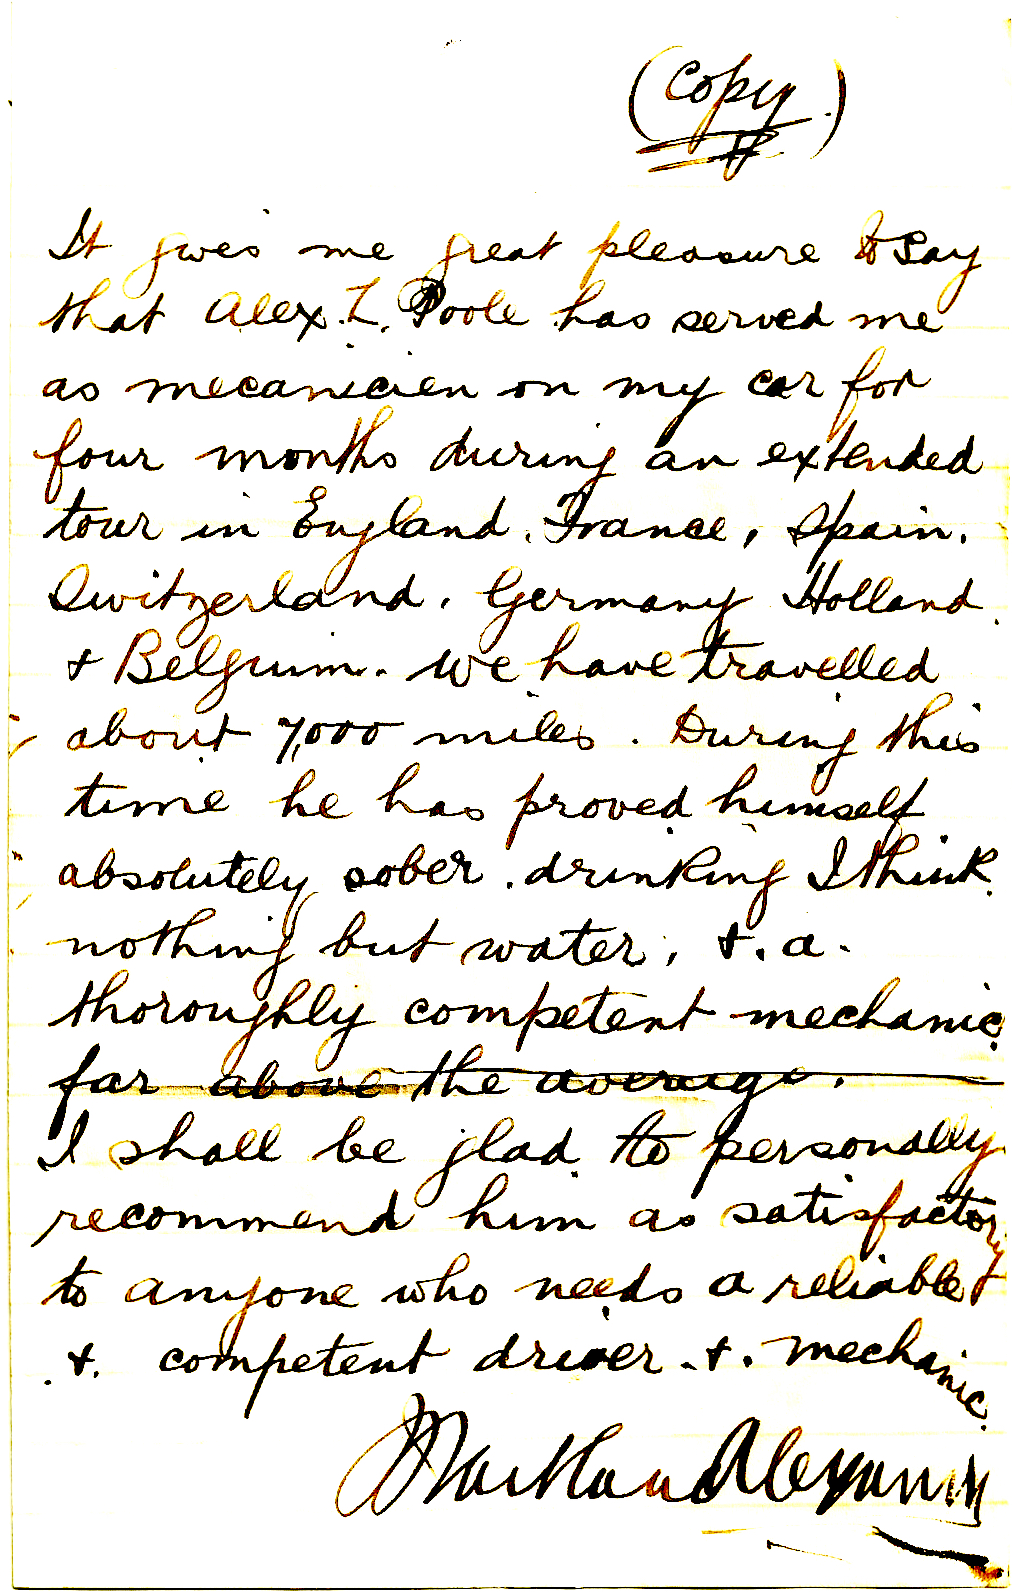 (Copy.)
It gives me great pleasure to say
that Alex. L. Poole has served me
as mecanicien on my car for
four months during an extended
tour in England, France, Spain.
Switzerland. Germany Holland.
& Belguim. We have travelled
about 7,000 miles. During this
time he has proved himself
absolutely sober. drinking I think
nothing but water, &. a.
thoroughly competent mechanic.
far above the average.
I shall be glad to personally
recommend him as satisfactory
to anyone who needs a reliable
&. competent driver. &. mechanic.